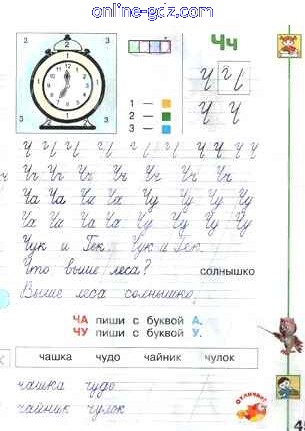 online-gdz.com
Чч
3 1 3
2
1 —
2 —
3 —
3 3
Ч Ч Ч Ч
Ч Ч Ч Ч Ч Ч Ч Ч Ч Ч
Чч Чч Чч Чч Чч Чч Чч
Ча Ча Ча Ча Чу Чу Чу Чу
Ча Ча Ча Ча Чу Чу Чу Чу
Чук и Гек. Чук и Гек.
Что выше леса? солнышко
Выше леса солнышко.
ЧА пиши с буквой А.
ЧУ пиши с буквой У.
чашка чудо чайник чулок
чашка чудо
чайник чулок
Отлично!
4